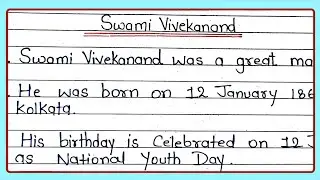 Swami Vivekanand
. Swami Vivekanand was a great
. He was born on 12 January
Kolkata.
His birthday is Celebrated on 12
as National Youth Day.